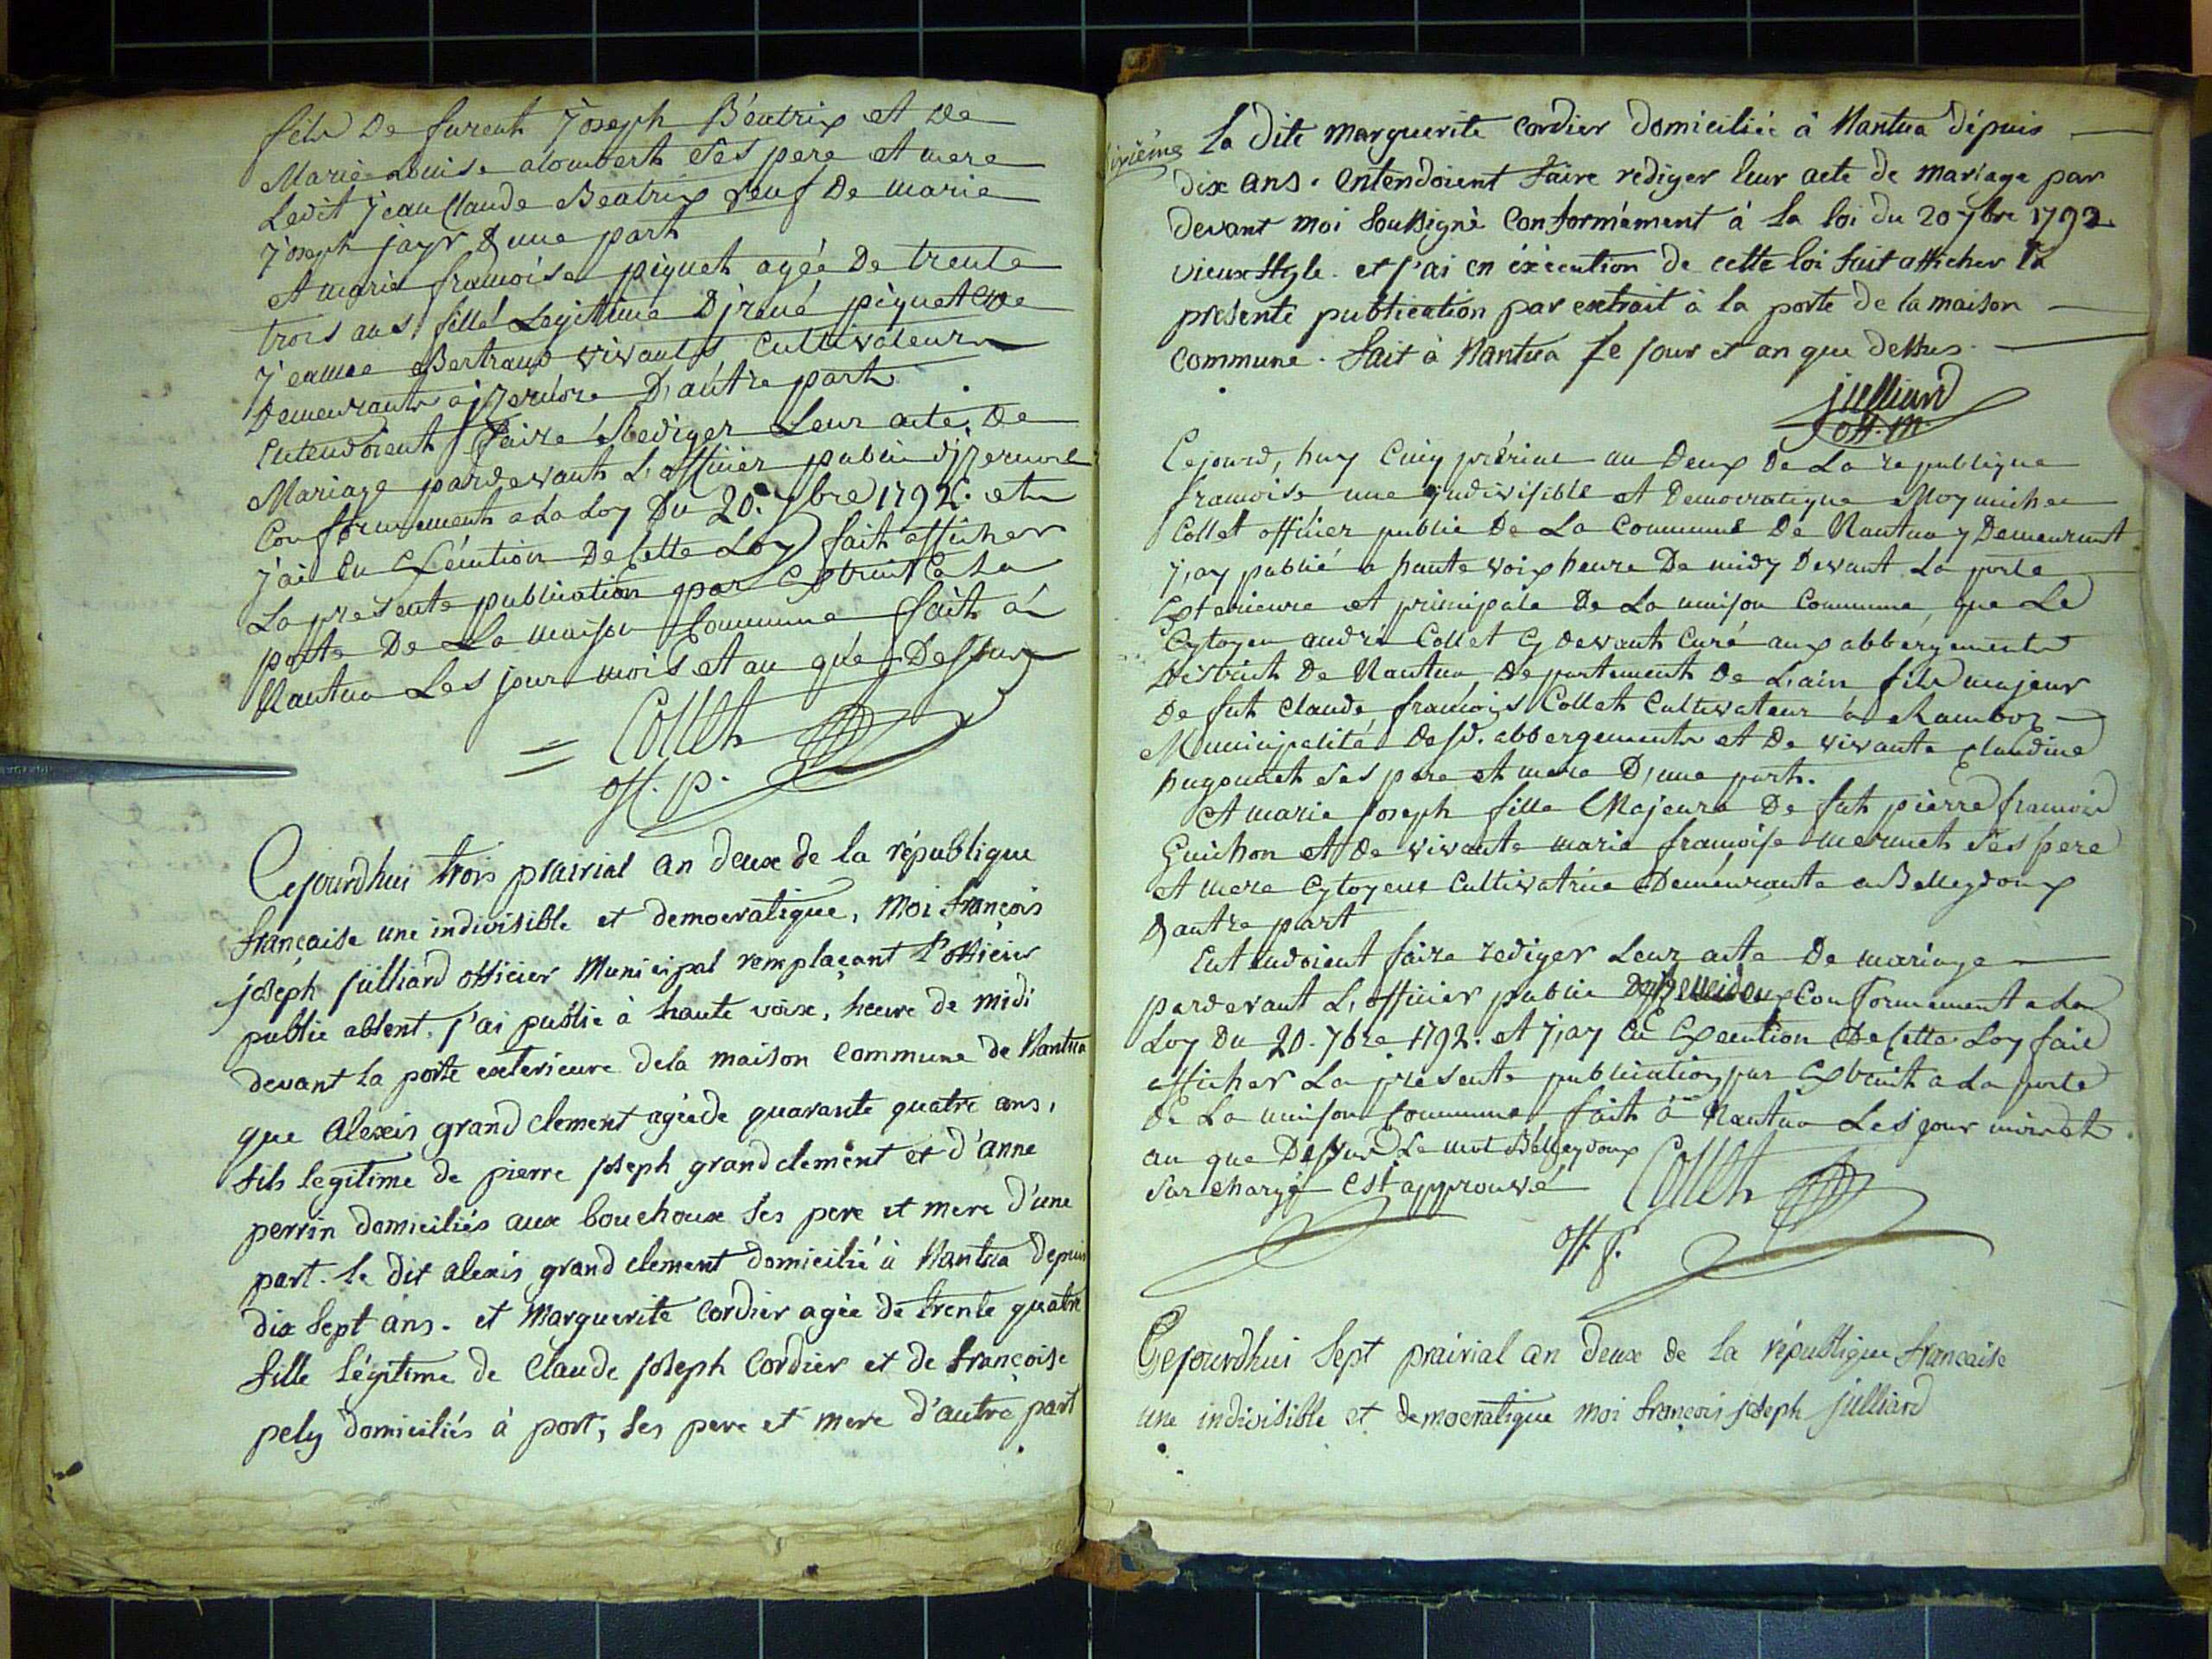 fils De furent Joseph Béatrix et De
Marie Louise alombert Ses pere et mere
Ledit Jean Claude Beatrix veuf De marie
Joseph jayr D'une part
et marie francoise piquet agée De trente
trois ans fille Legitime D'jrené piquet et De
Jeanne Bertrand vivants Cultivateurs
Demeurants a jzernore D'autre part
Entendoient faire Rediger Leur acte De
Mariage pardevant L'officier public d'jzernore
Conformement a La Loy Du 20. 7bre 1792. et
J'ai En Execution De Cette Loy fait afficher
La presente publication par Extrait a La
porte De La maison Commune fait à
Nantua Les jour mois et an que Dessus
Collet
off. p.
Cejourdhui trois prairial an deux de la république
française une indivisible et democratique, moi françois
joseph julliard officier Municipal remplaçant l'officier
public absent, j'ai publié à haute voix, heure de midi
devant la porte exterieure dela maison commune de Nantua
que Alexis grand clement agé de quarante quatre ans,
fils legitime de pierre joseph grand clement et d'anne
perrin domiciliés aux bouchoux ses pere et mere d'une
part. le dit alexis grand clement domicilié à Nantua depuis
dix sept ans. et Marguerite Cordier agée de trente quatre
fille légitime de Claude joseph Cordier et de françoise
pely domiciliés à port, ses pere et mere d'autre part
La dite marguerite cordier domiciliée à Nantua dépuis
dix ans. entendoient faire rediger leur acte de mariage par
devant moi soussigné Conformément à la loi du 20 7bre 1792
vieux style. et j'ai en éxécution de cette loi fait afficher la
présente publication par extrait à la porte de la maison
commune. fait à Nantua Le jour et an que dessus
julliard
off. m.
Cejourd'huy Cinq prérial an Deux De La republique
francoise une jndivisible et Democratique Moy michel
Collet officier public De La Commune De Nantua y Demeurant
j'ay publié a haute voix heure De midy Devant La porte
Exterieure et principale De La maison Commune, que Le
Cytoyen andré Collet Cy devant Curé aux abbergements
District De Nantua Departement De L'ain fils majeur
De fut Claude françois Collet Cultivateur a
Municipalité Desd. abbergements et De vivante Claudine
hugonnet Ses pere et mere D'une part.
Et marie Joseph fille Majeure De fut pierre francois
Guichon et De vivante marie françoise mermet Ses pere
et mere Cytoyene Cultivatrice Demeurante a Belleydoux
D'autre part
Entendoient faire rediger Leur acte De mariage
pardevant L'officier public Conformement a La
Loy Du 20. 7bre 1792. et j'ay En Execution De Cette Loy fait
afficher La presente publication par Extrait a La porte
De La maison Commune fait à Nantua Les jour mois et
an que Dessus Le mot Belleydoux
Surchargé est approuvé Collet
off. p.
Cejourdhui Sept prairial an deux de la république française
une indivisible et democratique moi françois joseph julliard